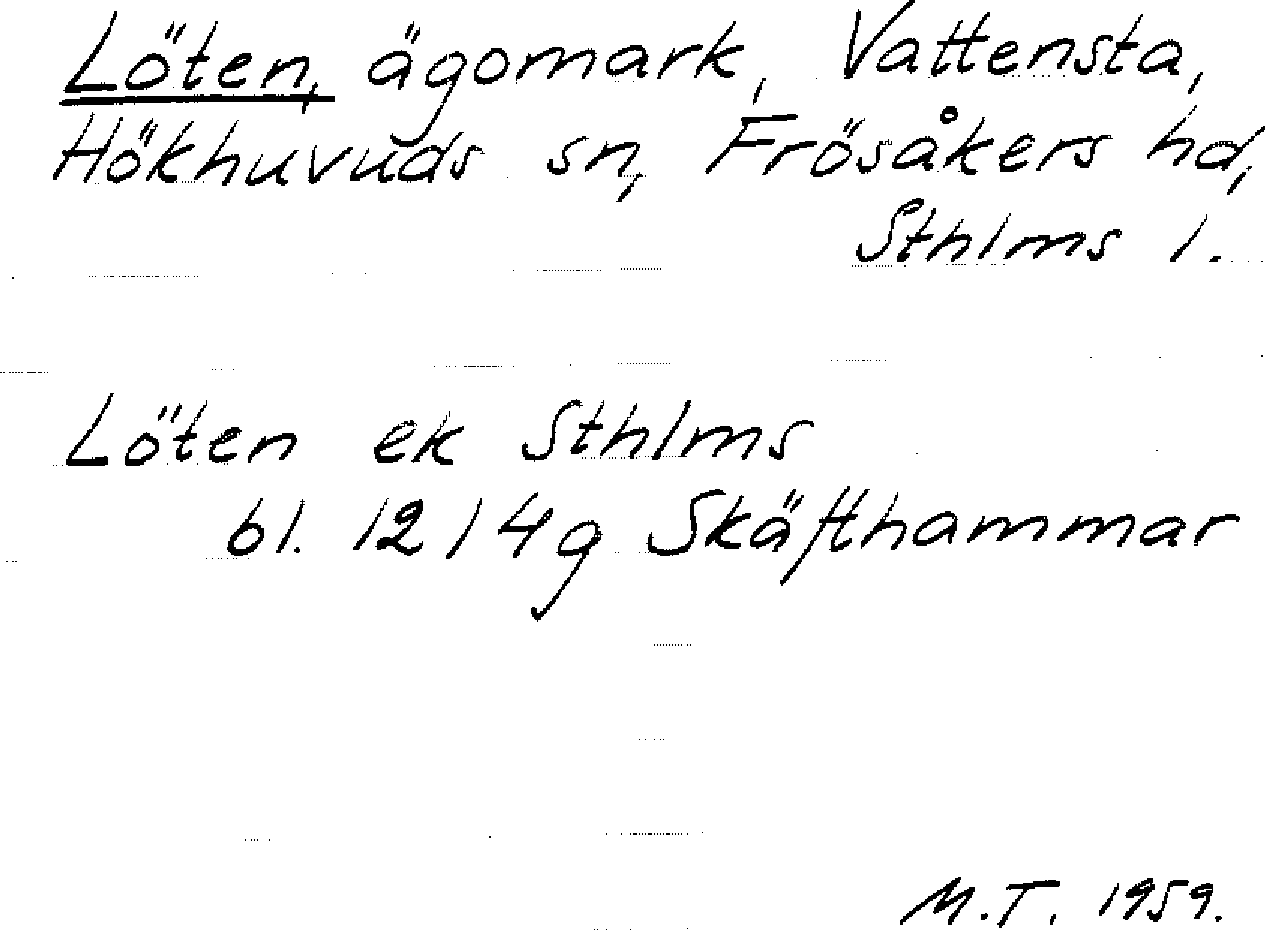 Löten, ägomark, Vattensta,
Hökhuvuds sn, Frösåkers hd,
Sthlms l.
Löten ek Sthlms
bl. 12 I 4g Skäfthammar
M.T. 1959.